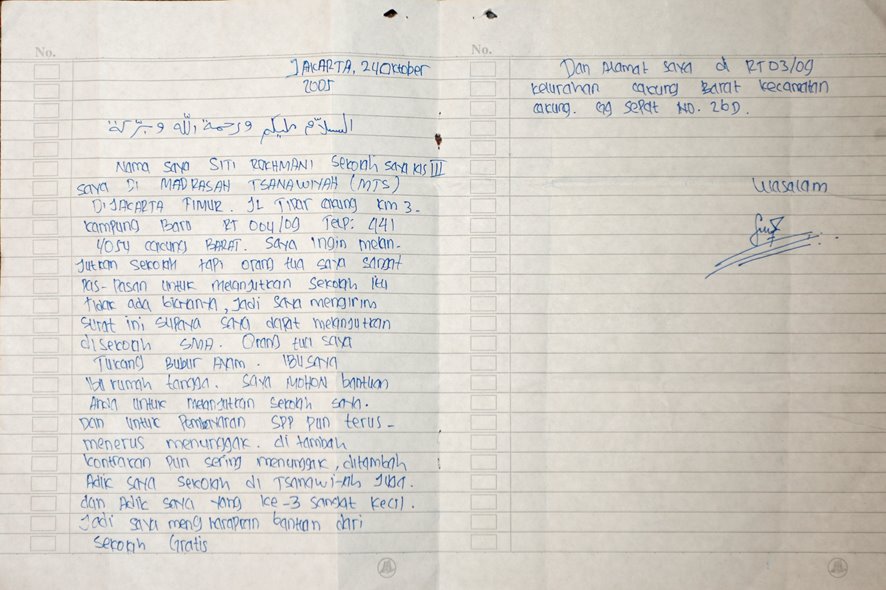 No.
JAKARTA, 24 Oktober
2005
السلام عليكم ورحمة الله وبركة
Nama saya SITI ROKHMANI Sekolah saya kls III
saya DI MADRASAH TSANAWIYAH (MTS)
DI JAKARTA TIMUR. JL Tipar cakung KM 3.
kampung Baru RT 004/09 Telp: 441
4054 cakung BARAT. Saya ingin melan-
jutkan sekolah tapi orang tua saya sangat
pas-pasan untuk melanjutkan sekolah itu
tidak ada biayanya, Jadi saya mengirim
surat ini supaya saya dapat melanjutkan
disekolah SMA. Orang tua saya
Tukang Bubur Ayam. IBU saya
Ibu rumah tangga. saya MOHON bantuan
Anda untuk melanjutkan sekolah saya.
Dan untuk Pembayaran SPP pun terus-
menerus menunggak. di tambah
kontrakan pun sering menunggak, ditambah
Adik saya sekolah di Tsanawi-ah Juga.
dan Adik saya yang ke-3 sangat kecil.
Jadi saya meng harapkan bantuan dari
sekolah Gratis
No.
Dan Alamat saya di RT 03/09
kelurahan cakung Barat kecamatan
cakung. gg sepat NO. 26D.
Wasalam